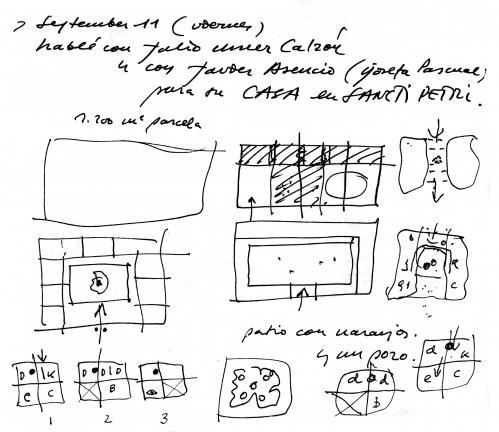 September 11 (viernes)
hablé con Julio
y con Javier Asencio (Josefa Pascual)
para su CASA en SANCTI PETRI.
1.200 m² parcela
patio con naranjos.
y un pozo.
D K
d d K
e C
e C
D D D
B
d d
b
1 2 3